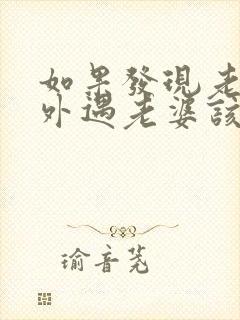 如果發現老
外遇老婆該
瑜音茺